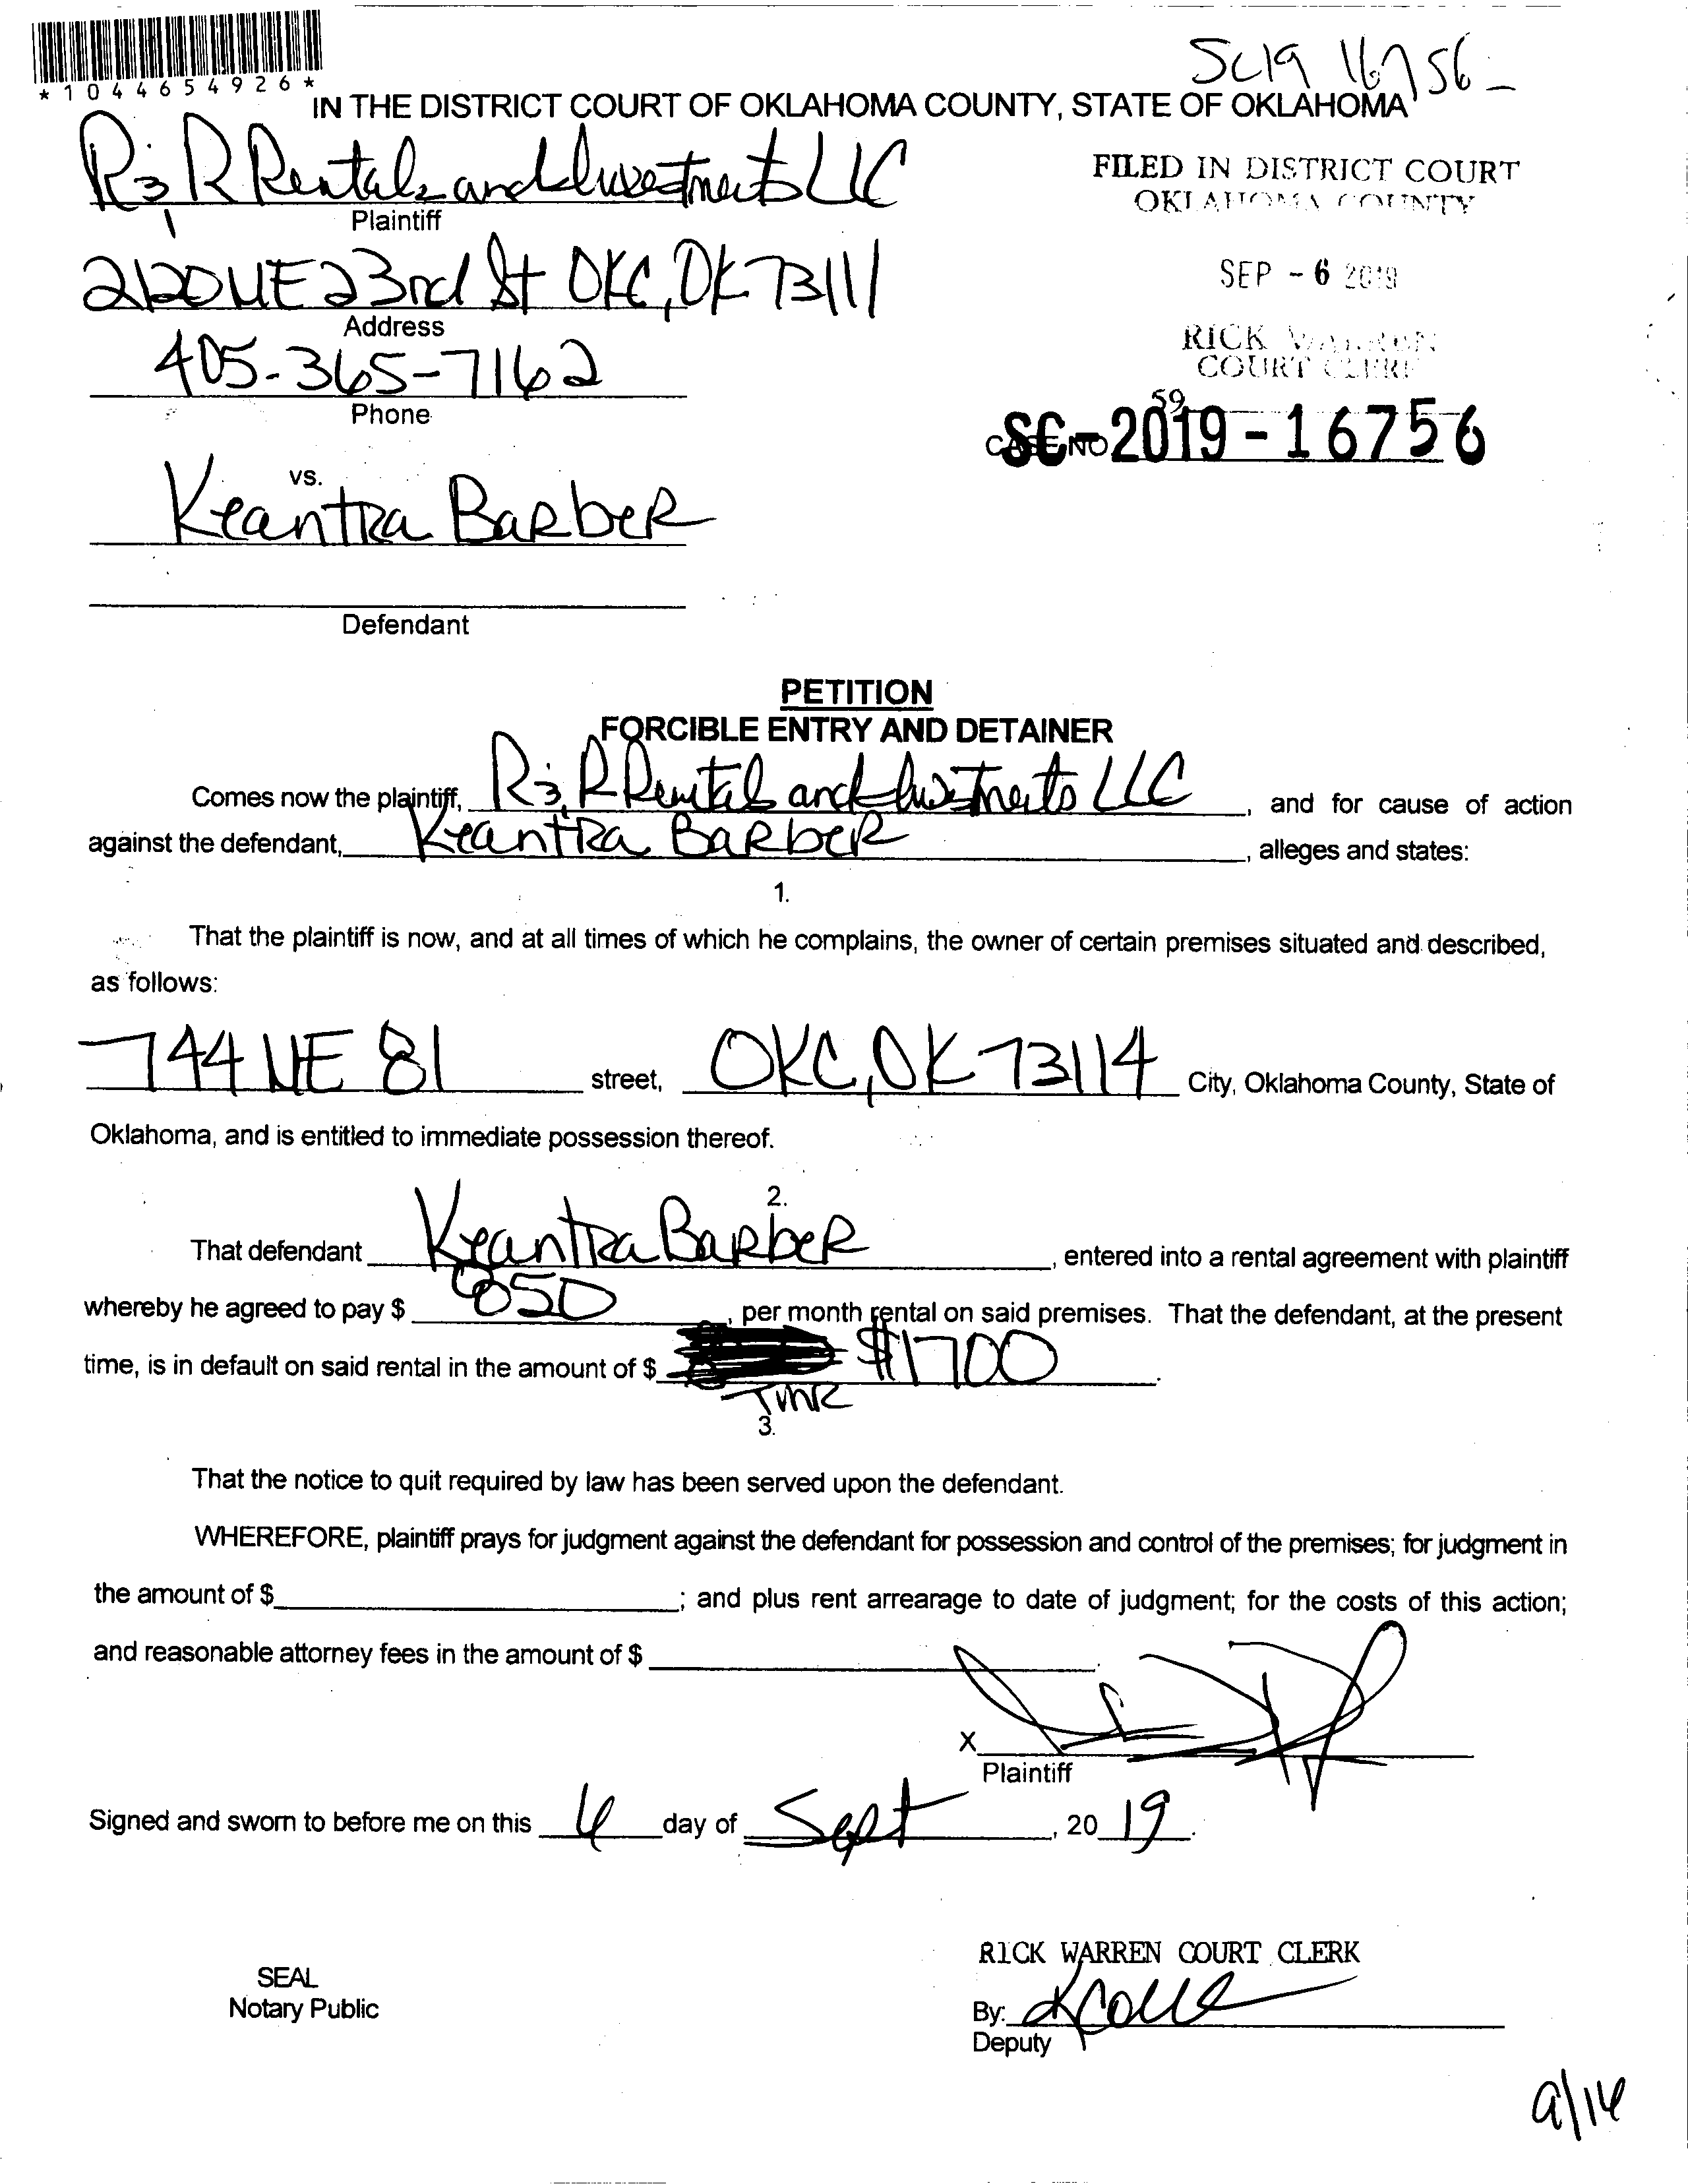 *1044654926*
SC19 16756-
IN THE DISTRICT COURT OF OKLAHOMA COUNTY, STATE OF OKLAHOMA
R & R Rentals and Investments LLC
FILED IN DISTRICT COURT
OKLAHOMA COUNTY
Plaintiff
2120 NE 23rd St OKC, OK 73111
SEP - 6 2019
Address
405-365-7162
RICK WARREN
COURT CLERK
Phone
59
CASE NO
SC-2019-16756
vs.
Keantra Barber
Defendant
PETITION
FORCIBLE ENTRY AND DETAINER
Comes now the plaintiff, R & R Rentals and Investments LLC, and for cause of action
against the defendant, Keantra Barber, alleges and states:
1.
That the plaintiff is now, and at all times of which he complains, the owner of certain premises situated and described,
as follows:
744 NE 81 street, OKC, OK 73114 City, Oklahoma County, State of
Oklahoma, and is entitled to immediate possession thereof.
2.
That defendant Keantra Barber, entered into a rental agreement with plaintiff
whereby he agreed to pay $ 850, per month rental on said premises. That the defendant, at the present
time, is in default on said rental in the amount of $ $1700.
TMR
3.
That the notice to quit required by law has been served upon the defendant.
WHEREFORE, plaintiff prays for judgment against the defendant for possession and control of the premises; for judgment in
the amount of $ ; and plus rent arrearage to date of judgment; for the costs of this action;
and reasonable attorney fees in the amount of $ .
X
Plaintiff
Signed and sworn to before me on this 6 day of Sept, 20 19.
RICK WARREN COURT CLERK
SEAL
Notary Public
By:
Deputy
9/16